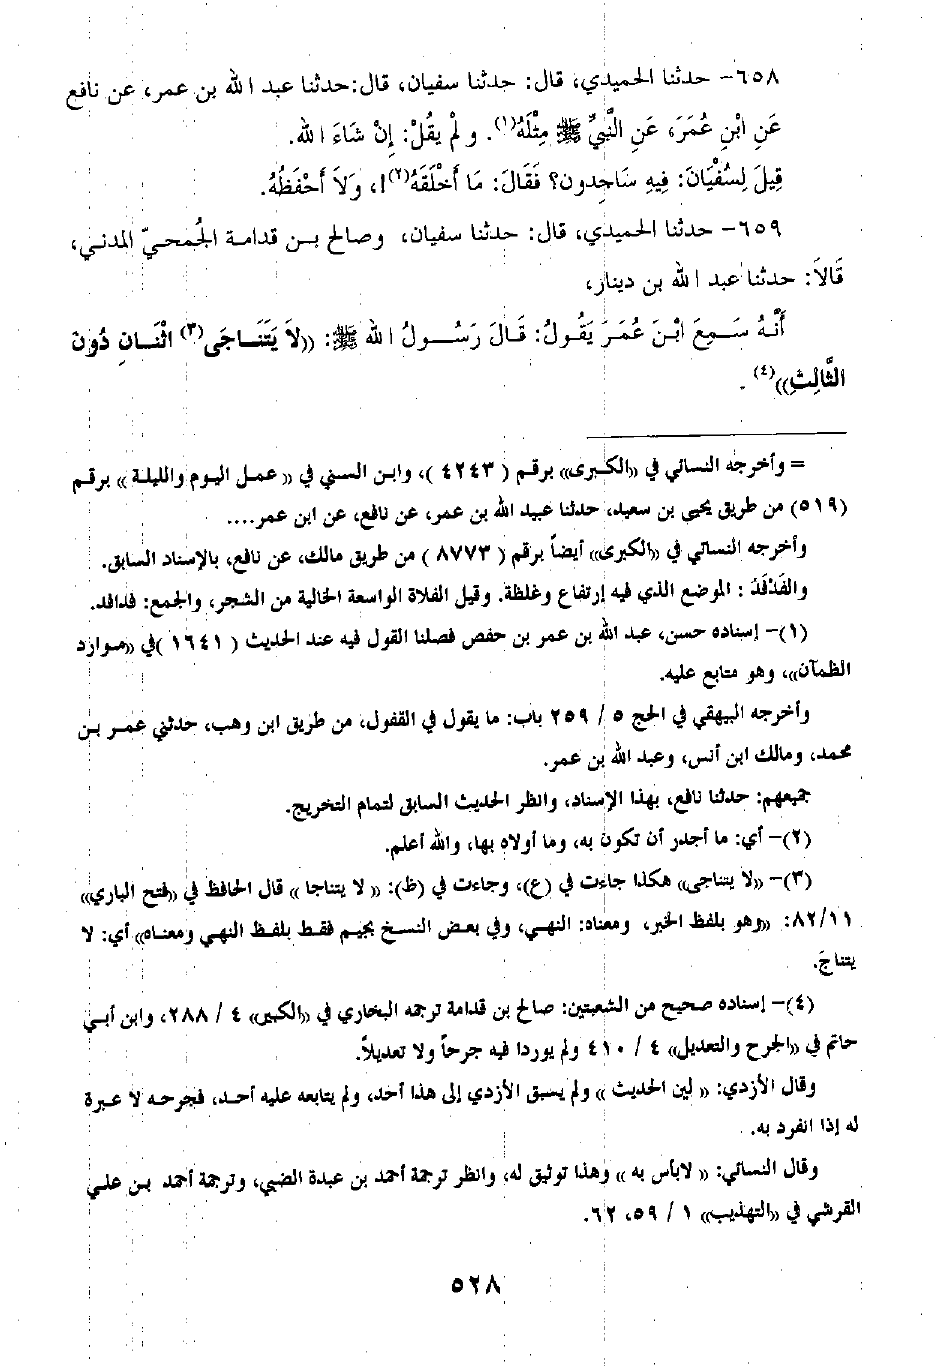 ٦٥٨- حدثنا الحميدي، قال: حدثنا سفيان، قال: حدثنا عبد الله بن عمر، عن نافع
عَنِ ابْنِ عُمَرَ، عَنِ النَّبِيِّ ﷺ مِثْلَهُ(١). و لَمْ يقُلْ: إِنْ شَاءَ الله.
قِيلَ لِسُفْيَانَ: فِيهِ سَاجِدون؟ فَقَالَ: مَا أَخْلَقَهُ(٢)!، وَلاَ أَحْفَظُهُ.
٦٥٩- حدثنا الحميدي، قال: حدثنا سفيان، وصالح بن قدامة الجُمحيّ المدني،
قَالاَ: حدثنا عبد الله بن دينار،
أَنَّهُ سَمِعَ ابْنَ عُمَرَ يَقُولُ: قَالَ رَسُولُ الله ﷺ: ((لاَ يَتَنَاجَى(٣) اثْنَانِ دُونَ
الثَّالِثِ))(٤).
= وأخرجه النسائي في «الكبرى» برقم ( ٤٢٤٣ )، وابن السني في « عمل اليوم والليلة » برقم
(٥١٩) من طريق يحيى بن سعيد، حدثنا عبيد الله بن عمر، عن نافع، عن ابن عمر....
وأخرجه النسائي في «الكبرى» أيضاً برقم ( ٨٧٧٣ ) من طريق مالك، عن نافع، بالإسناد السابق.
والفَدْفَدُ : الموضع الذي فيه إرتفاع وغلظة. وقيل الفلاة الواسعة الخالية من الشجر، والجمع: فدافد.
(١)- إسناده حسن، عبد الله بن عمر بن حفص فصلنا القول فيه عند الحديث ( ١٦٤١ )في «موارد
الظمآن»، وهو متابع عليه.
وأخرجه البيهقي في الحج ٥ / ٢٥٩ باب: ما يقول في القفول، من طريق ابن وهب، حدثني عمر بن
محمد، ومالك ابن أنس، وعبد الله بن عمر.
جميعهم: حدثنا نافع، بهذا الإسناد، وانظر الحديث السابق لتمام التخريج.
(٢)- أي: ما أجدر أن تكون به، وما أولاه بها، والله أعلم.
(٣)- «لا يتناجى» هكذا جاءت في (ع)، وجاءت في (ظ): « لا يتناجا » قال الحافظ في «فتح الباري»
٨٢/١١: «وهو بلفظ الخبر، ومعناه: النهي، وفي بعض النسخ بجيم فقط بلفظ النهي ومعناه» أي: لا
يتناجَ.
(٤)- إسناده صحيح من الشعبتين: صالح بن قدامة ترجمه البخاري في «الكبير» ٤ / ٢٨٨، وابن أبي
حاتم في «الجرح والتعديل» ٤ / ٤١٠ ولم يوردا فيه جرحاً ولا تعديلاً.
وقال الأزدي: « لين الحديث » ولم يسبق الأزدي إلى هذا أحد، ولم يتابعه عليه أحد، فجرحه لا عبرة
له إذا انفرد به.
وقال النسائي: « لابأس به » وهذا توثيق له، وانظر ترجمة أحمد بن عبدة الضبي، وترجمة أحمد بن علي
القرشي في «التهذيب» ١ / ٥٩، ٦٢.
٥٢٨